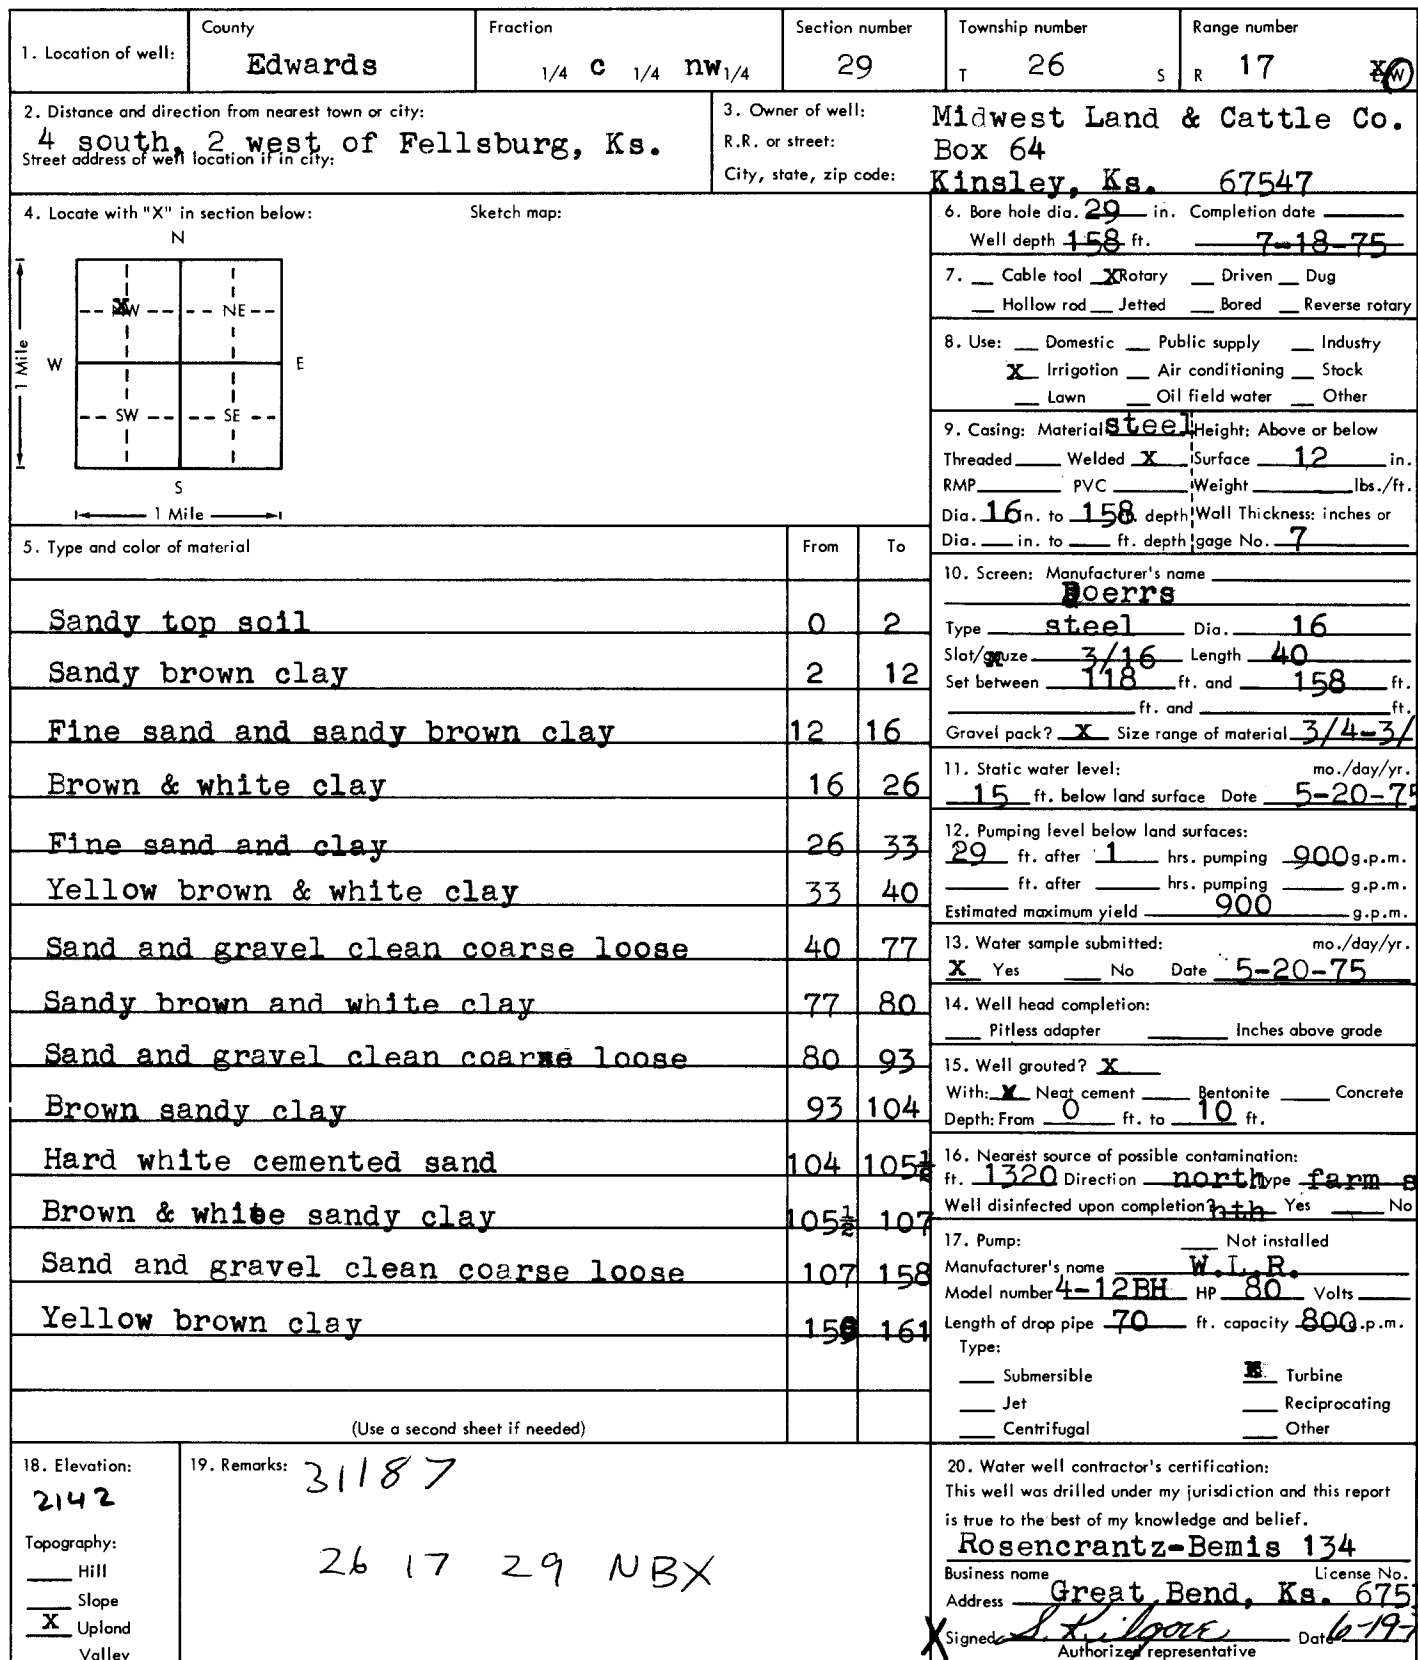 1. Location of well: County Edwards Fraction 1/4 c 1/4 nw 1/4 Section number 29 Township number T 26 S Range number R 17 W
2. Distance and direction from nearest town or city:
4 south, 2 west of Fellsburg, Ks.
Street address of well location if in city:
3. Owner of well: Midwest Land & Cattle Co.
R.R. or street: Box 64
City, state, zip code: Kinsley, Ks. 67547
4. Locate with "X" in section below: Sketch map:
N
X NW NE
W E
1 Mile
SW SE
S
1 Mile
5. Type and color of material From To
Sandy top soil 0 2
Sandy brown clay 2 12
Fine sand and sandy brown clay 12 16
Brown & white clay 16 26
Fine sand and clay 26 33
Yellow brown & white clay 33 40
Sand and gravel clean coarse loose 40 77
Sandy brown and white clay 77 80
Sand and gravel clean coarse loose 80 93
Brown sandy clay 93 104
Hard white cemented sand 104 105½
Brown & white sandy clay 105½ 107
Sand and gravel clean coarse loose 107 158
Yellow brown clay 158 161
(Use a second sheet if needed)
6. Bore hole dia. 29 in. Completion date
Well depth 158 ft. 7-18-75
7. Cable tool X Rotary Driven Dug
Hollow rod Jetted Bored Reverse rotary
8. Use: Domestic Public supply Industry
X Irrigation Air conditioning Stock
Lawn Oil field water Other
9. Casing: Material steel Height: Above or below
Threaded Welded X Surface 12 in.
RMP PVC Weight lbs./ft.
Dia. 16 in. to 158 depth Wall Thickness: inches or
Dia. in. to ft. depth gage No. 7
10. Screen: Manufacturer's name
Doerrs
Type steel Dia. 16
Slot/gauze 3/16 Length 40
Set between 118 ft. and 158 ft.
ft. and ft.
Gravel pack? X Size range of material 3/4-3/
11. Static water level: mo./day/yr.
15 ft. below land surface Date 5-20-75
12. Pumping level below land surfaces:
29 ft. after 1 hrs. pumping 900 g.p.m.
ft. after hrs. pumping g.p.m.
Estimated maximum yield 900 g.p.m.
13. Water sample submitted: mo./day/yr.
X Yes No Date 5-20-75
14. Well head completion:
Pitless adapter Inches above grade
15. Well grouted? X
With: X Neat cement Bentonite Concrete
Depth: From 0 ft. to 10 ft.
16. Nearest source of possible contamination:
ft. 1320 Direction north Type farm s
Well disinfected upon completion? hth Yes No
17. Pump: Not installed
Manufacturer's name W.L.R.
Model number 4-12BH HP 80 Volts
Length of drop pipe 70 ft. capacity 800 g.p.m.
Type:
Submersible X Turbine
Jet Reciprocating
Centrifugal Other
18. Elevation:
2142
Topography:
Hill
Slope
X Upland
Valley
19. Remarks: 31187
26 17 29 NBX
20. Water well contractor's certification:
This well was drilled under my jurisdiction and this report
is true to the best of my knowledge and belief.
Rosencrantz-Bemis 134
Business name License No.
Address Great Bend, Ks. 675
X Signed S. Kilgore Date 6-19-
Authorized representative